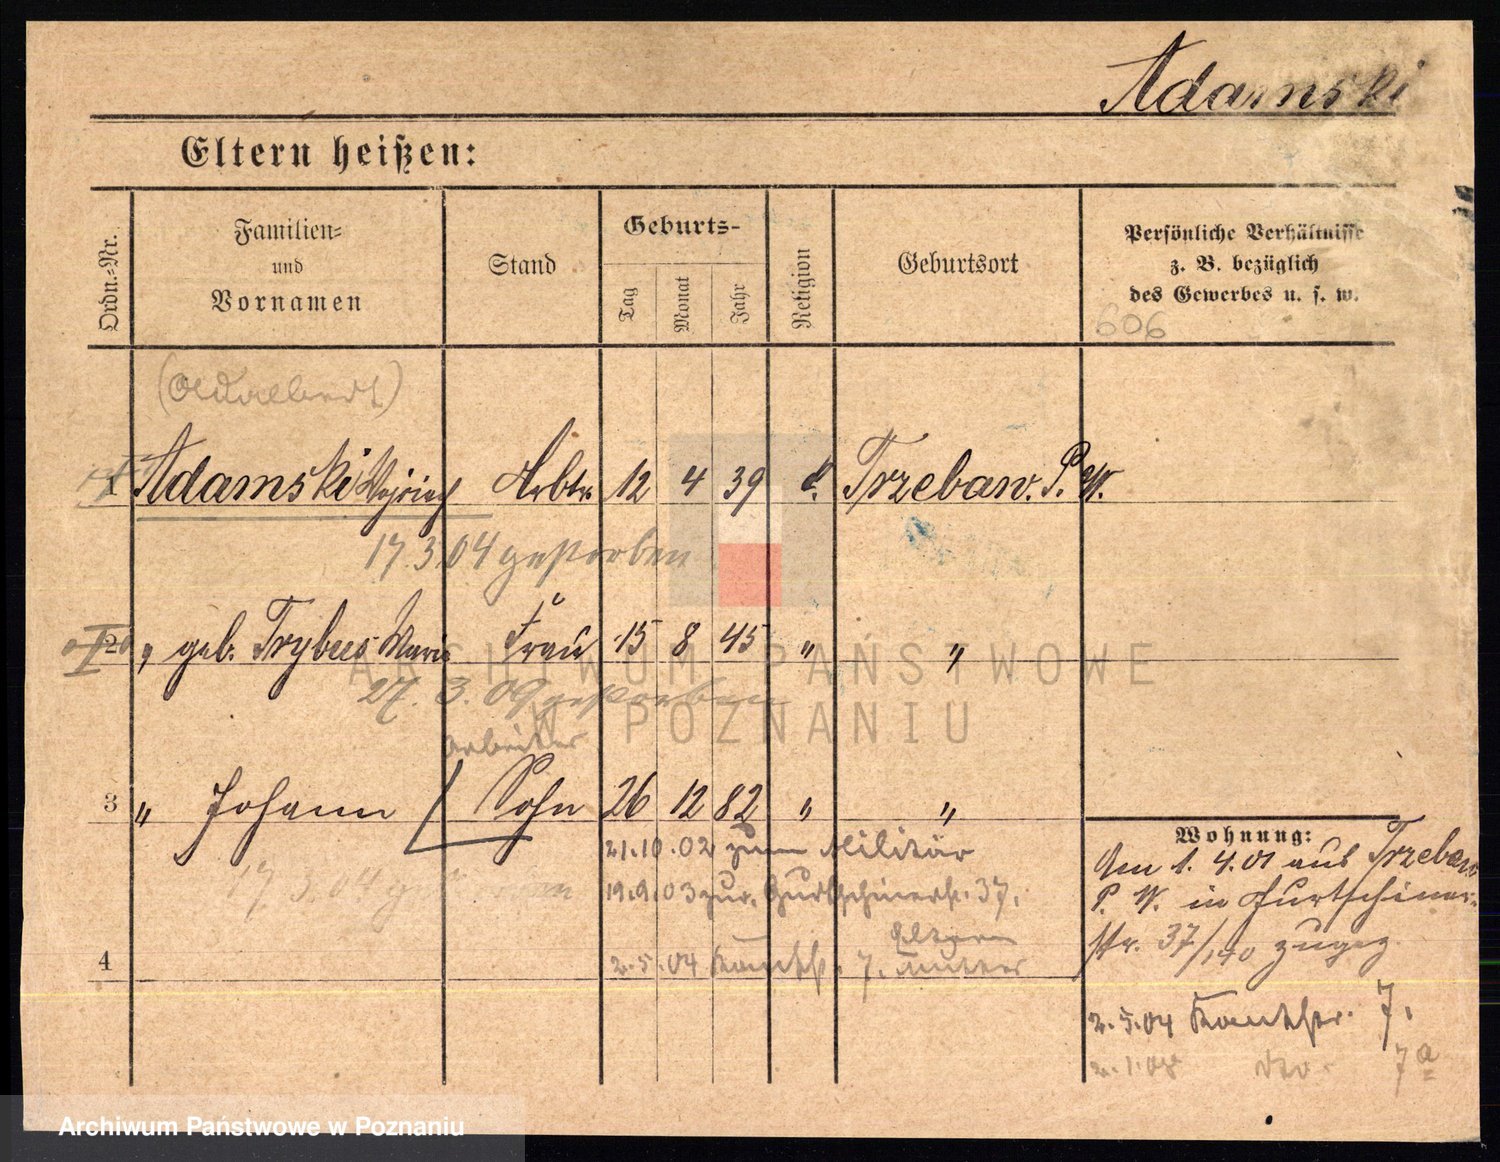 Adamski
Eltern heißen:
Ordn.-Nr.
Familien-
und
Vornamen
Stand
Geburts-
Tag
Monat
Jahr
Religion
Geburtsort
Persönliche Verhältnisse
z. B. bezüglich
des Gewerbes u. s. w.
606
(Adalbert)
1 Adamski Wojciech Arbtr 12 4 39 k. Trzebaw. P. W.
17.3.04 gestorben
2 " geb. Trybus Marie Frau 15 8 45 " "
27.3.09 gestorben
Arbeiter
3 " Johann Sohn 26 12 82 " "
21.10.02 zum Militär
17.3.04
19.9.03 zur. Gurtschinerstr. 37.
Eltern
4 2.5.04 7. Mutter
Wohnung:
Am 1. 4. 01 aus Trzebaw
P. W. in Gurtschiner-
str. 37 zugez.
2.5.04 7.
dto. 7a
ARCHIWUM PAŃSTWOWE
W POZNANIU
Archiwum Państwowe w Poznaniu